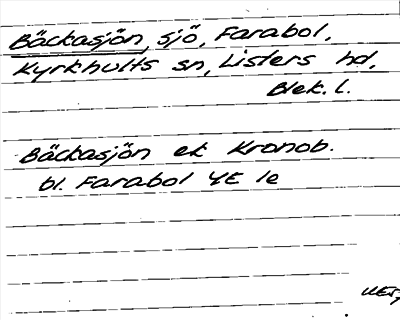 Bäckasjön, sjö, Farabol,
Kyrkhults sn, Listers hd,
Blek. l.
Bäckasjön ek Kronob.
bl. Farabol 4E 1e